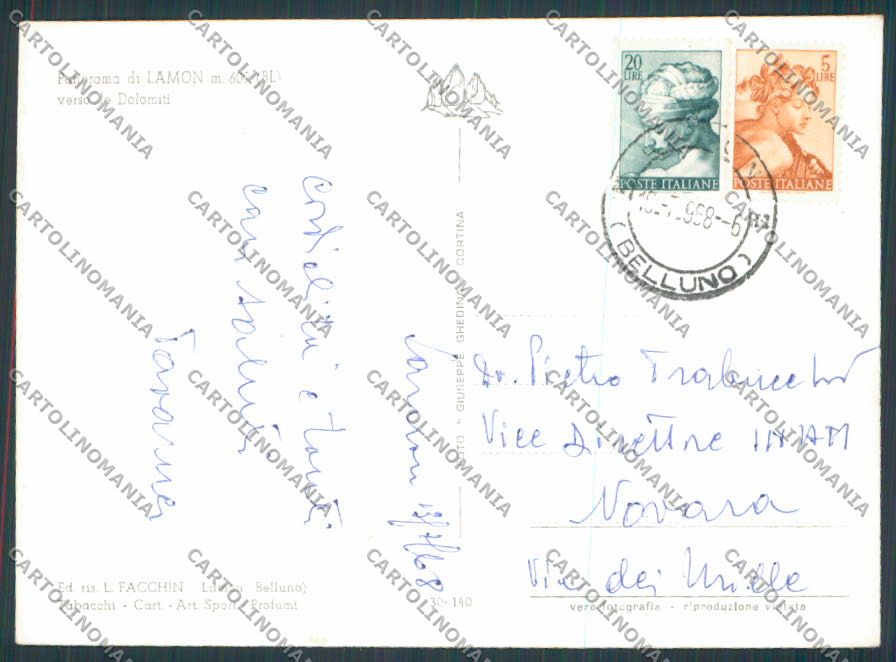 Panorama di LAMON m. 606 (BL)
verso le Dolomiti
20
LIRE
POSTE ITALIANE
5
LIRE
POSTE ITALIANE
(BELLUNO)
cordialità e tanti
cari saluti
Lamon 18/7/68
FOTO GIUSEPPE GHEDINA CORTINA
Dr. Pietro
Vice Direttore INAM
Novara
Via dei Mille
Ed. ris. L. FACCHIN Lamon Belluno)
Tabacchi - Cart. - Art. Sport. Profumi
30-140
vera fotografia - riproduzione vietata
CARTOLINOMANIA